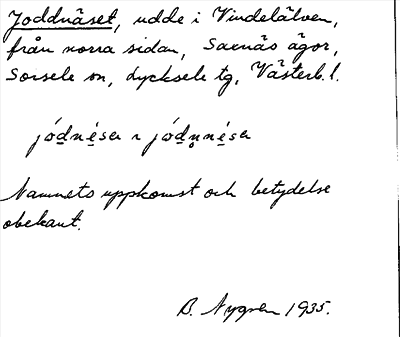 Joddnäset, udde i Vindelälven,
från norra sidan, Saxnäs ägor,
Sorsele sn, Lycksele tg, Västerb. l.
jó̲dné̲sa ~ jó̲dn̥né̲sa
Namnets uppkomst och betydelse
obekant.
B. Nygren 1935.